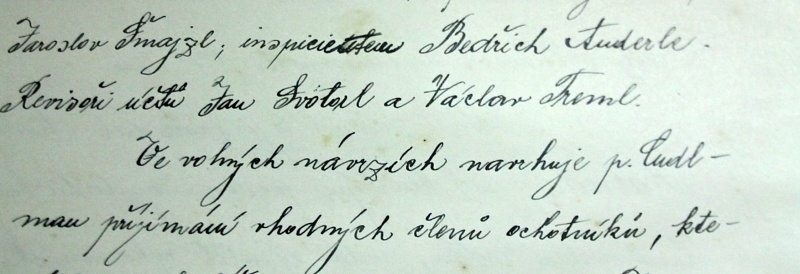 Jaroslav Šmajzl, inspicientem Bedřich Anderle.
Revisoři účtů Jan Svítal a Václav Treml.
Ve volných návrzích navrhuje p. Cudl-
man přijímání vhodných členů ochotníků, kte-